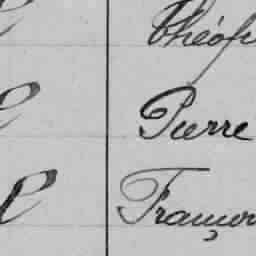 Théop
P Pierre
P Françoi